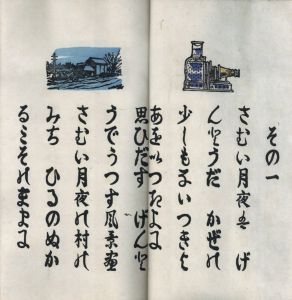 その一
さむい月夜は げ
んとうだ かぜの
少しもないつきよ
あをいつきよに
思ひだす げんと
うでうつす風景画
さむい月夜の村の
みち ひるのぬか
るみそのままに